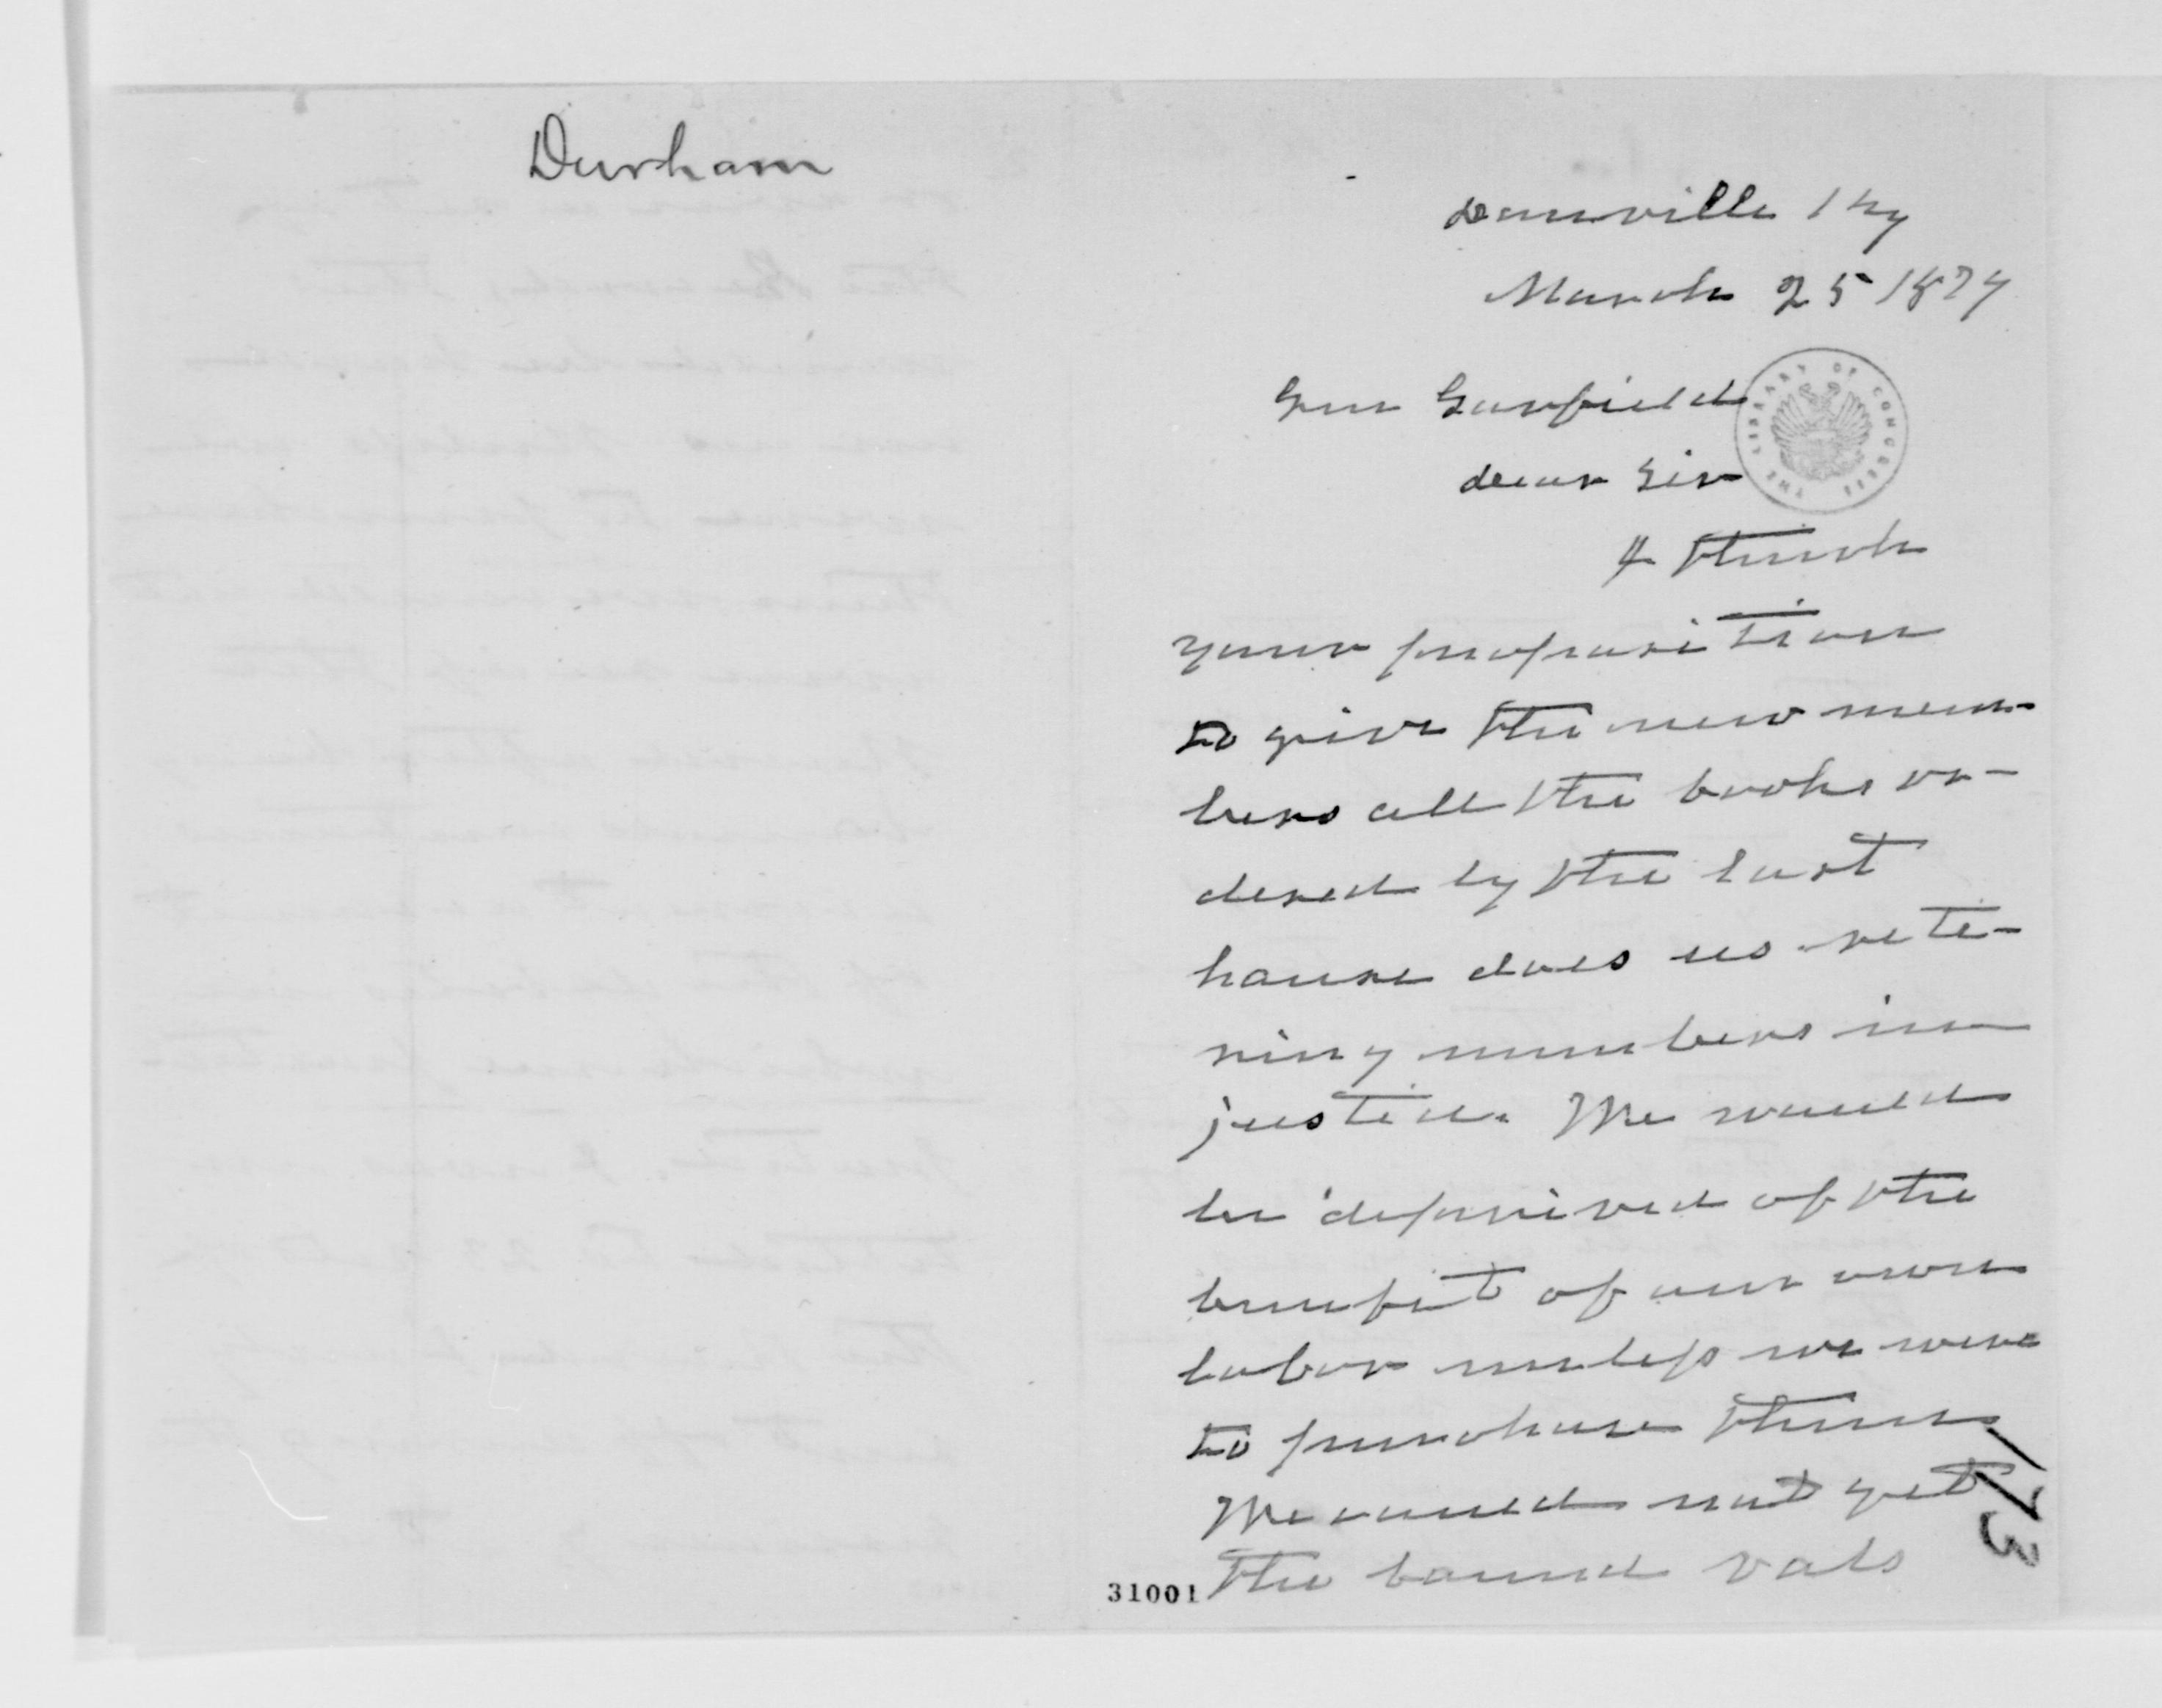 Durham
Danville Ky
March 25 1879
Gen Garfield
dear Sir
THE LIBRARY OF CONGRESS
I think
your proposition
to give the new mem-
bers all the books or-
dered by the last
house does us reti-
ring members in
justice. We would
be deprived of the
benefit of our own
labor unless we were
to purchase them
We could not get
the bound vols
173
31001